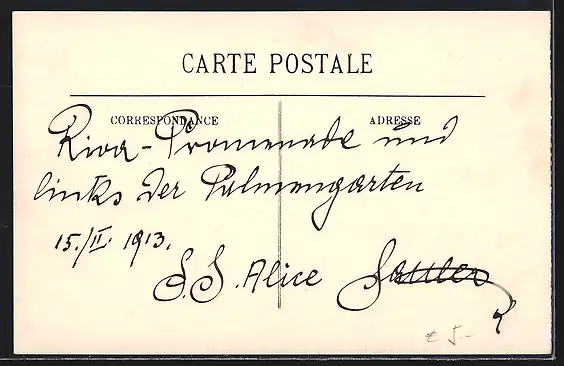 CARTE POSTALE
CORRESPONDANCE ADRESSE
Riva-Promenade und
links der Palmengarten
15./II. 1913.
S.S. Alice
€ 5.-